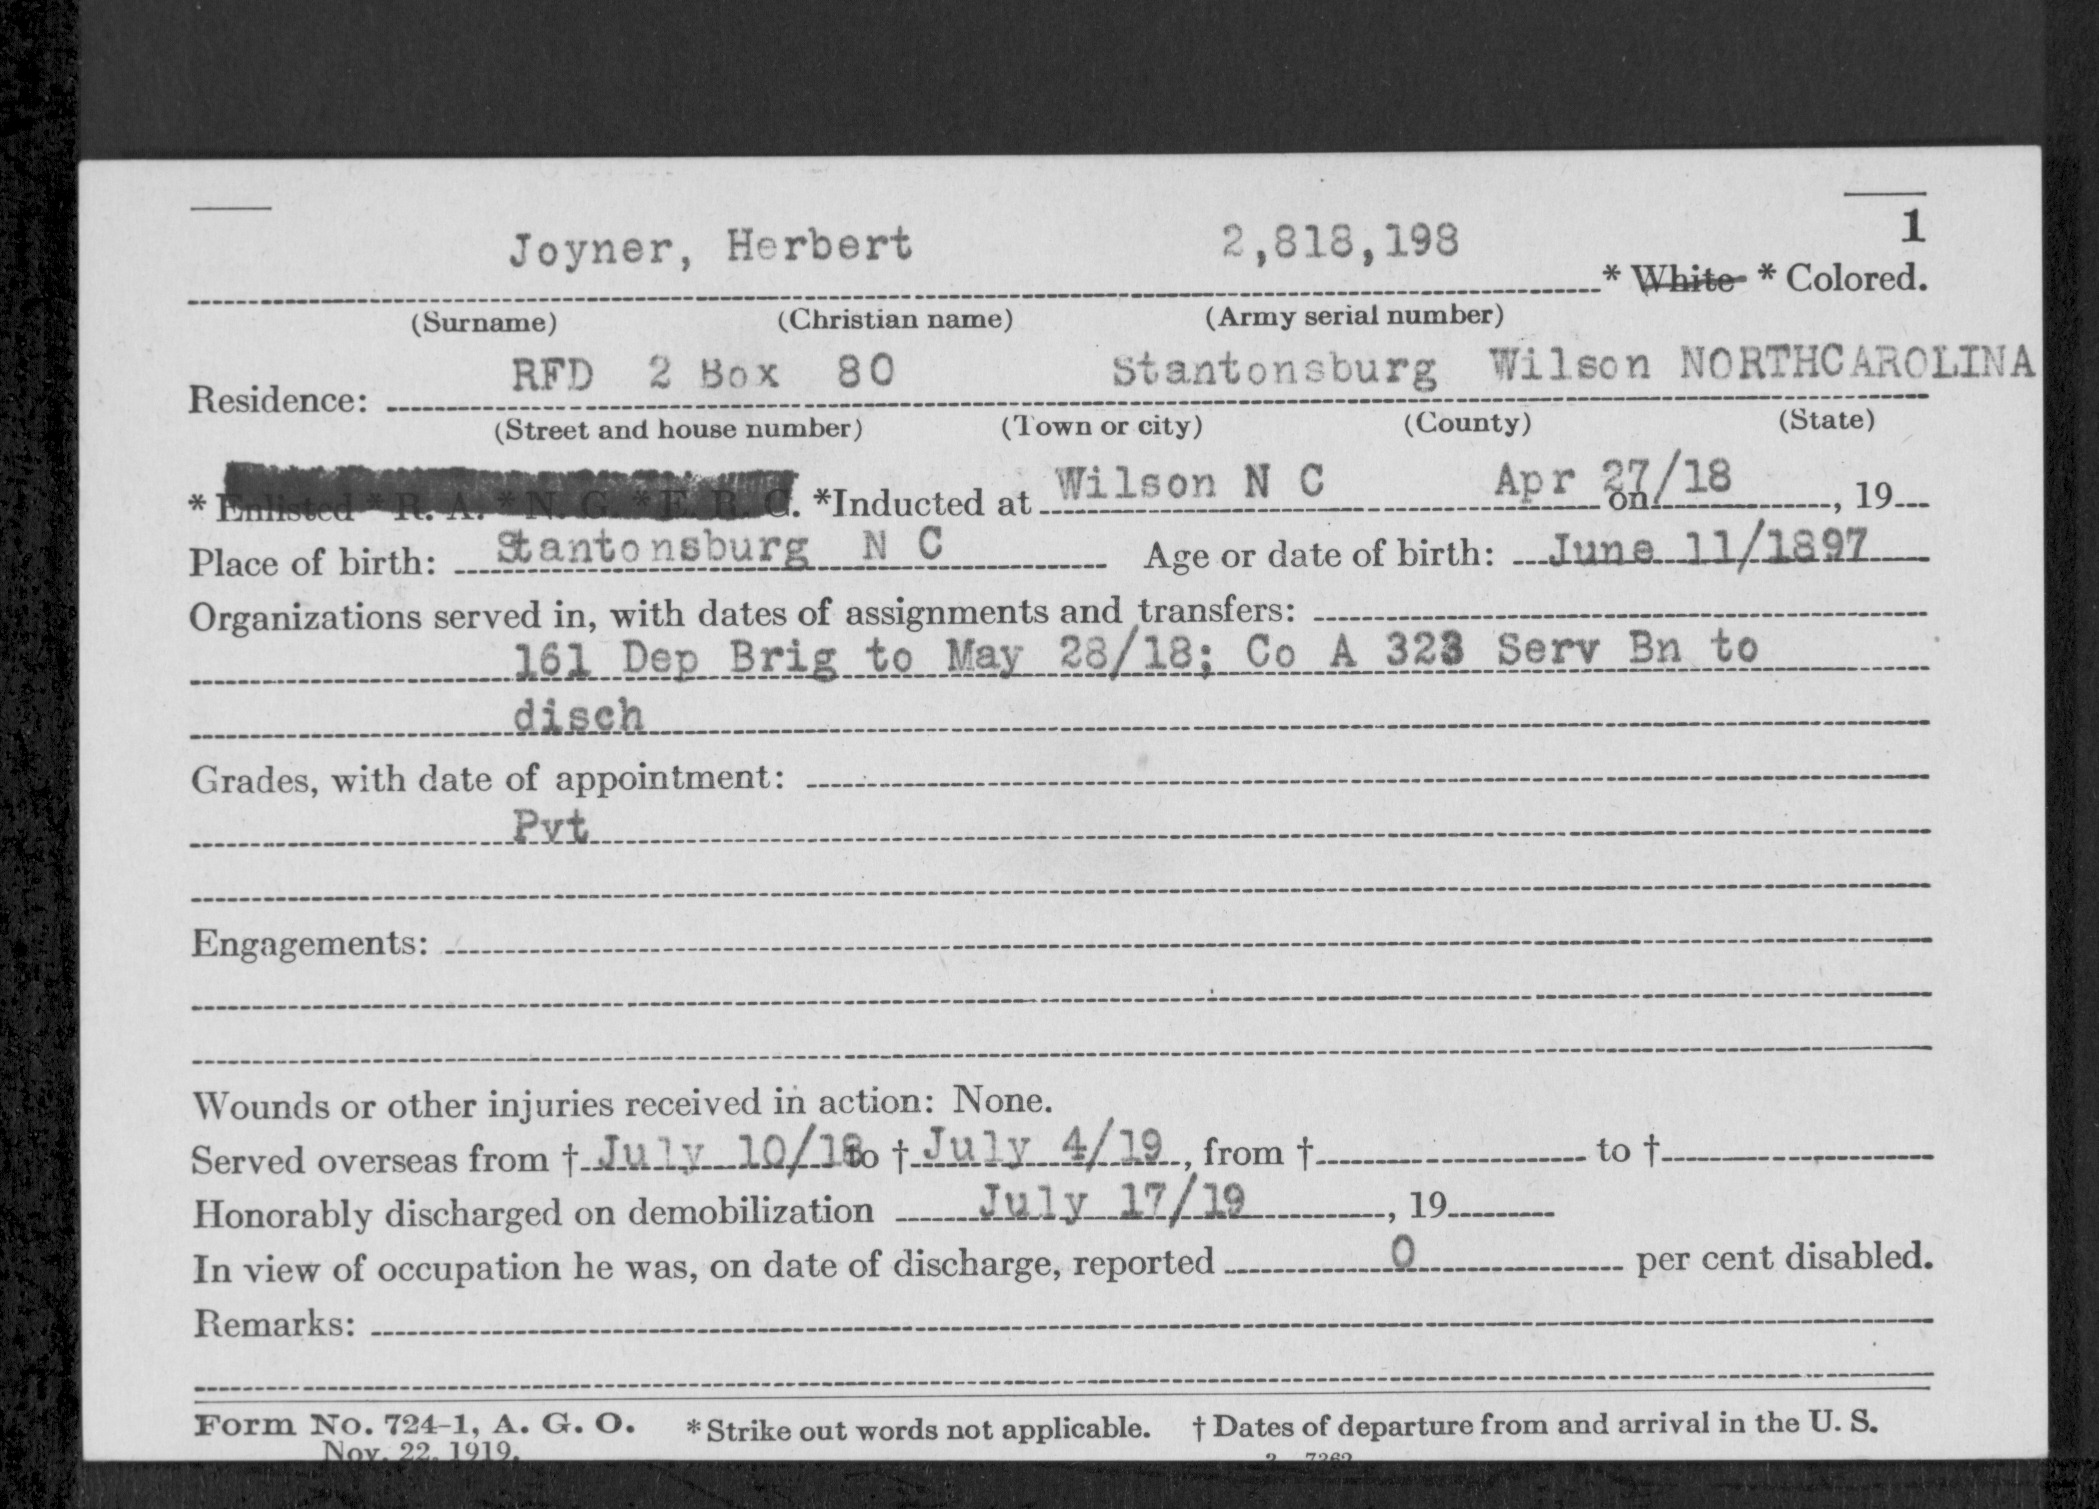 1
Joyner, Herbert 2,818,198 * White * Colored.
(Surname) (Christian name) (Army serial number)
Residence: RFD 2 Box 80 Stantonsburg Wilson NORTHCAROLINA
(Street and house number) (Town or city) (County) (State)
* Enlisted * R. A. * N. G. * E. R. C. *Inducted at Wilson N C Apr 27/18 on , 19
Place of birth: Stantonsburg N C Age or date of birth: June 11/1897
Organizations served in, with dates of assignments and transfers:
161 Dep Brig to May 28/18; Co A 323 Serv Bn to
disch
Grades, with date of appointment:
Pvt
Engagements:
Wounds or other injuries received in action: None.
Served overseas from † July 10/18 to † July 4/19, from † to †
Honorably discharged on demobilization July 17/19 , 19
In view of occupation he was, on date of discharge, reported 0 per cent disabled.
Remarks:
Form No. 724-1, A. G. O. * Strike out words not applicable. † Dates of departure from and arrival in the U. S.
Nov. 22, 1919. 3—7262